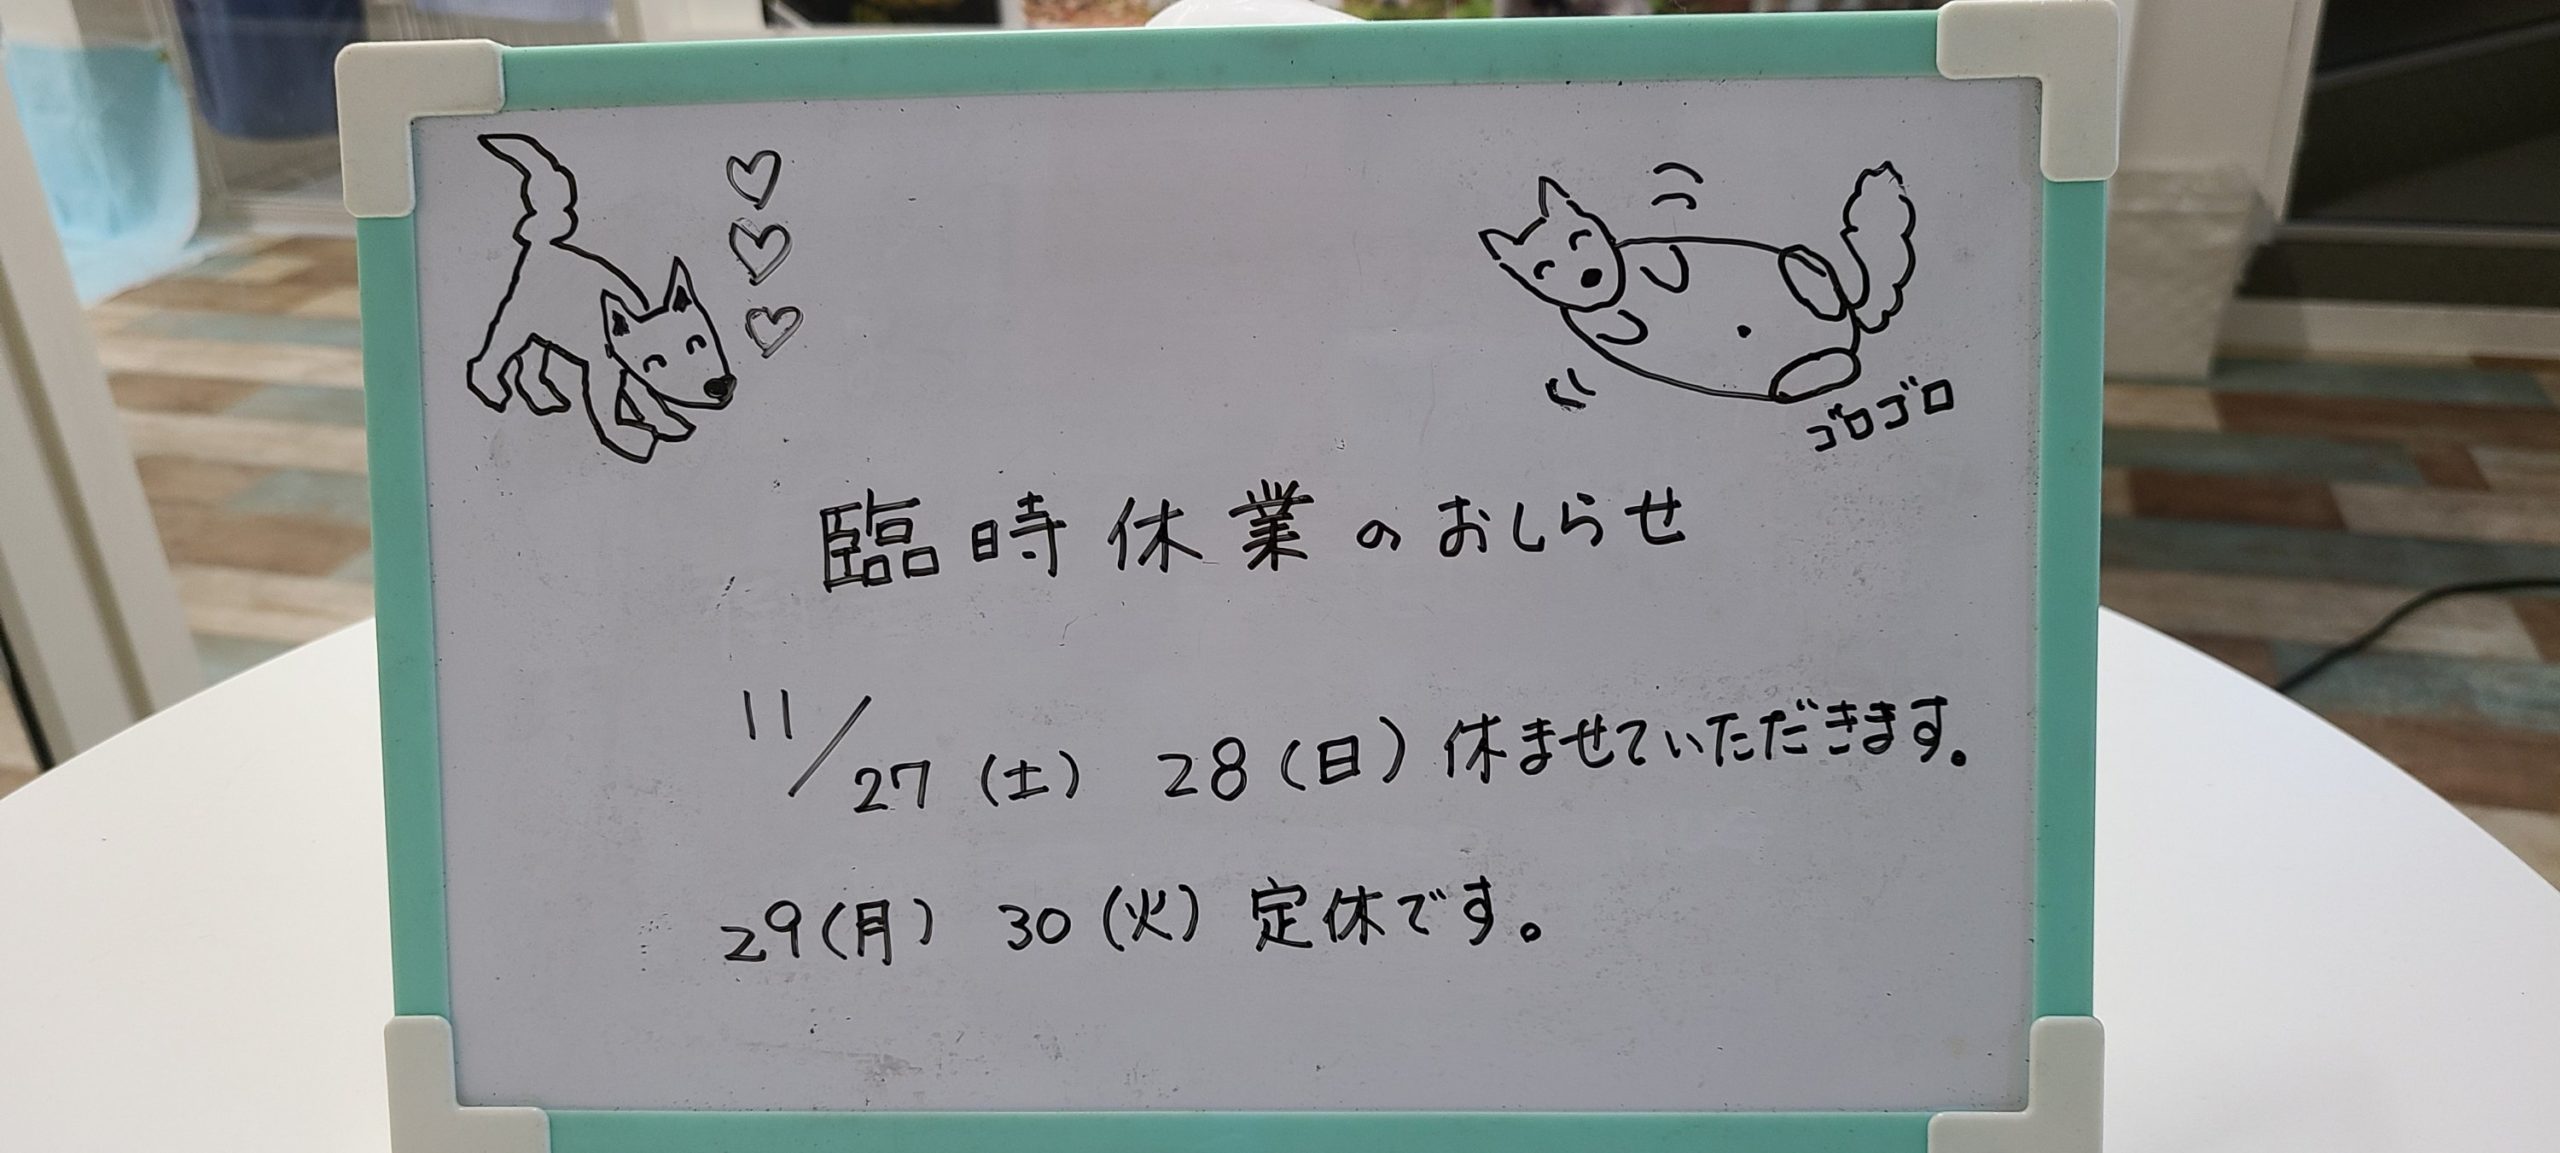 ゴロゴロ
臨時休業のおしらせ
11/27(土) 28(日)休ませていただきます。
29(月) 30(火)定休です。